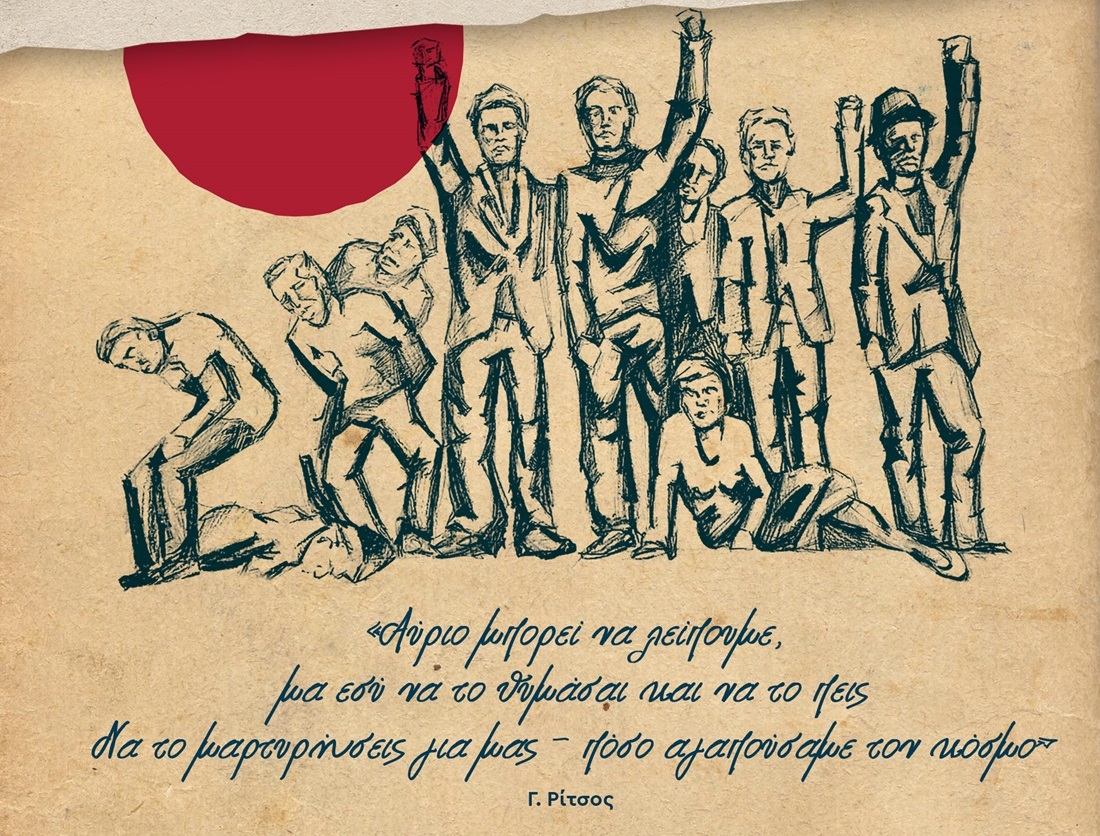 «Αύριο μπορεί να λείπουμε,
μα εσύ να το θυμάσαι και να το πεις
Να το μαρτυρήσεις για μας – πόσο αγαπούσαμε τον κόσμο»
Γ. Ρίτσος